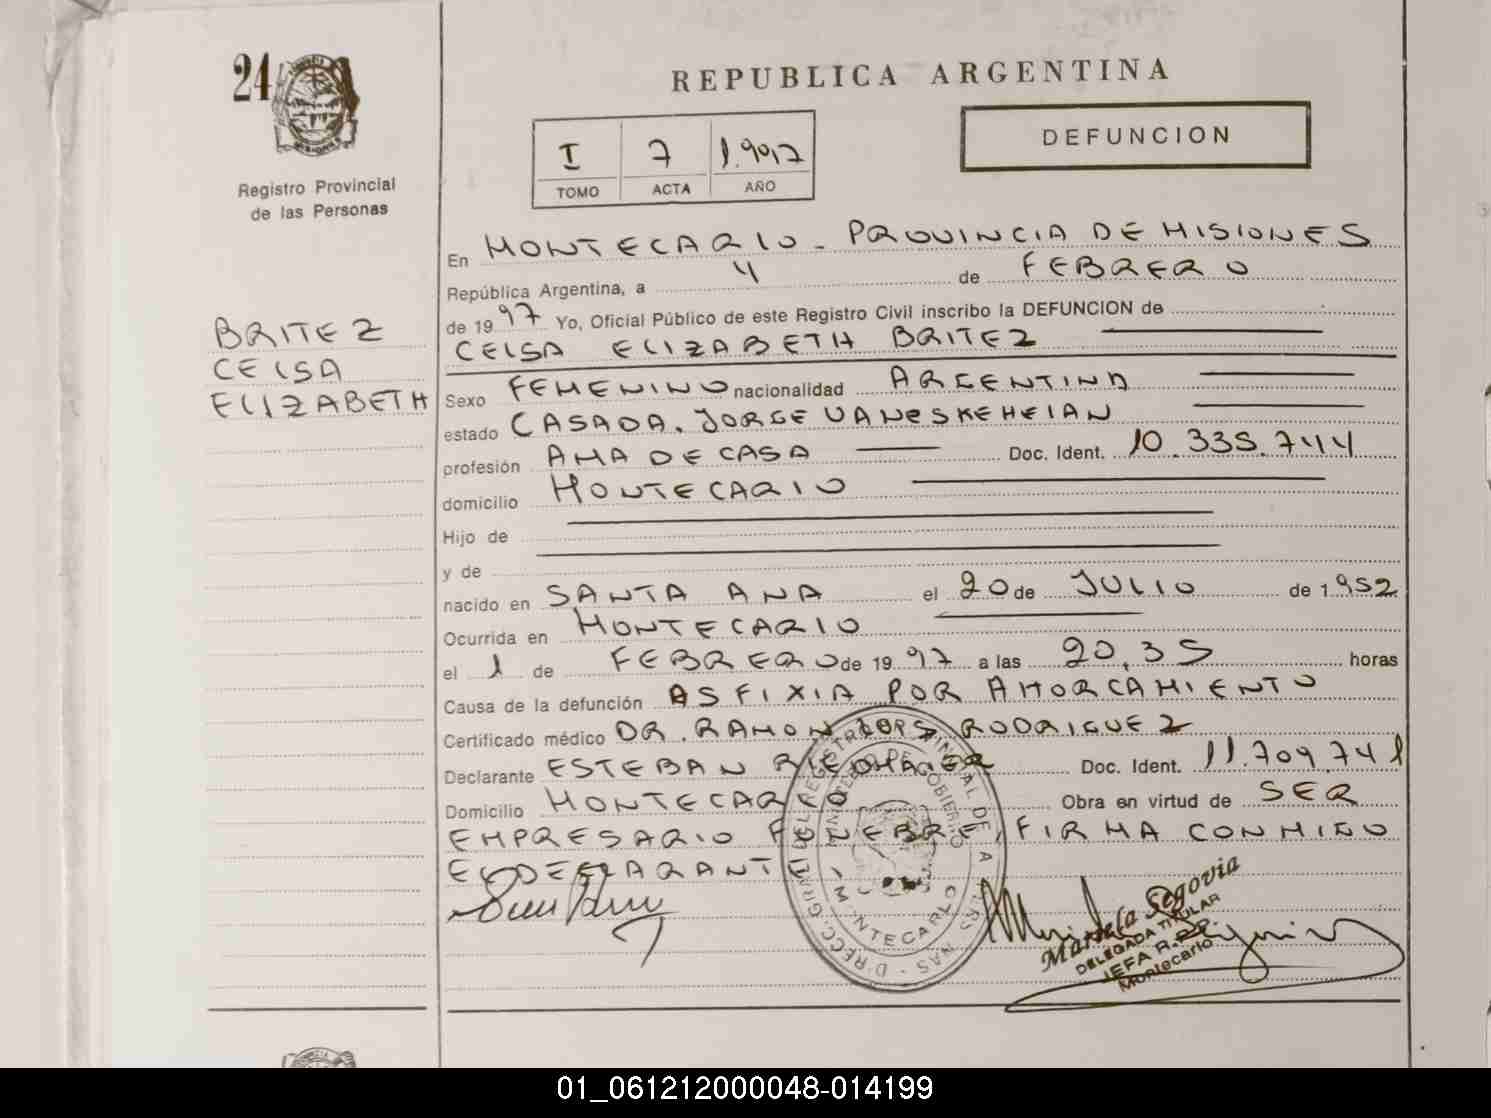 24
REPUBLICA ARGENTINA
DEFUNCION
I 7 1.997
TOMO ACTA AÑO
Registro Provincial
de las Personas
En MONTECARLO - PROVINCIA DE MISIONES
República Argentina, a 4 de FEBRERO
de 1997 Yo, Oficial Público de este Registro Civil inscribo la DEFUNCION de
CELSA ELIZABETH BRITEZ
BRITEZ
CELSA
ELIZABETH
Sexo FEMENINO nacionalidad ARGENTINA
estado CASADA. JORGE VANESKEHEIAN
profesión AMA DE CASA Doc. Ident. 10.335.744
domicilio MONTECARLO
Hijo de
y de
nacido en SANTA ANA el 20 de JULIO de 1952
Ocurrida en MONTECARLO
el 1 de FEBRERO de 1997 a las 20,35 horas
Causa de la defunción ASFIXIA POR AHORCAMIENTO
Certificado médico DR. RAMON RODRIGUEZ
Declarante ESTEBAN Doc. Ident. 11.709.741
Domicilio MONTECARLO Obra en virtud de SER
EMPRESARIO FUNEBRE, FIRMA CONMIGO
EL DECLARANTE
MONTECARLO
Mariela Segovia
DELEGADA TITULAR
JEFA R.P.P.
Montecarlo
01_061212000048-014199